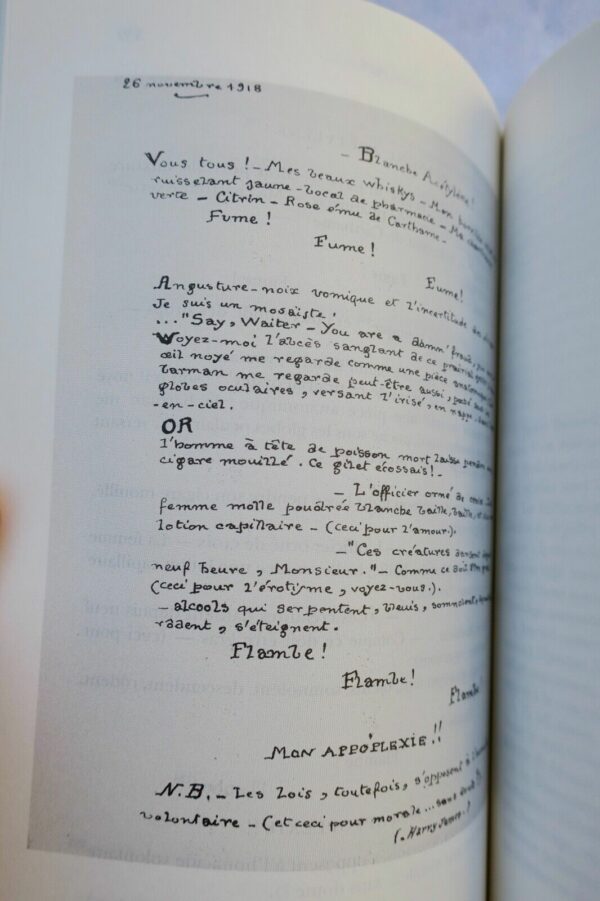 26 novembre 1918
– Blanche Acétylène !
Vous tous ! – Mes beaux whiskys – Mon
ruisselant jaune – bocal de pharmacie – Ma
verte – Citrin – Rose ému de Carthame –
Fume !
Fume !
Fume !
Angusture – noix vomique et l'incertitude
Je suis un mosaïste.
..."Say, Waiter – You are a damn' fraud,
Voyez-moi l'abcès sanglant de ce prairial
œil noyé me regarde comme une pièce
barman me regarde peut-être aussi,
globes oculaires, versant l'irisé, en nappe,
-en-ciel.
OR
l'homme à tête de poisson mort laisse
cigare mouillé. Ce gilet écossais ! –
– L'officier orné de croix –
femme molle poudrée blanche baille, baille,
lotion capillaire – (ceci pour l'amour.).
– "Ces créatures dansent
neuf heure, Monsieur." – Comme ce
(ceci pour l'érotisme, voyez-vous.).
– alcools qui serpentent, bleuis, somnolent,
rôdent, s'éteignent.
Flambe !
Flambe !
Flambe !
MON APPÔPLEXIE !!
N.B. – Les lois, toutefois, s'opposent à
volontaire – (et ceci pour morale...
(. Harry James .)